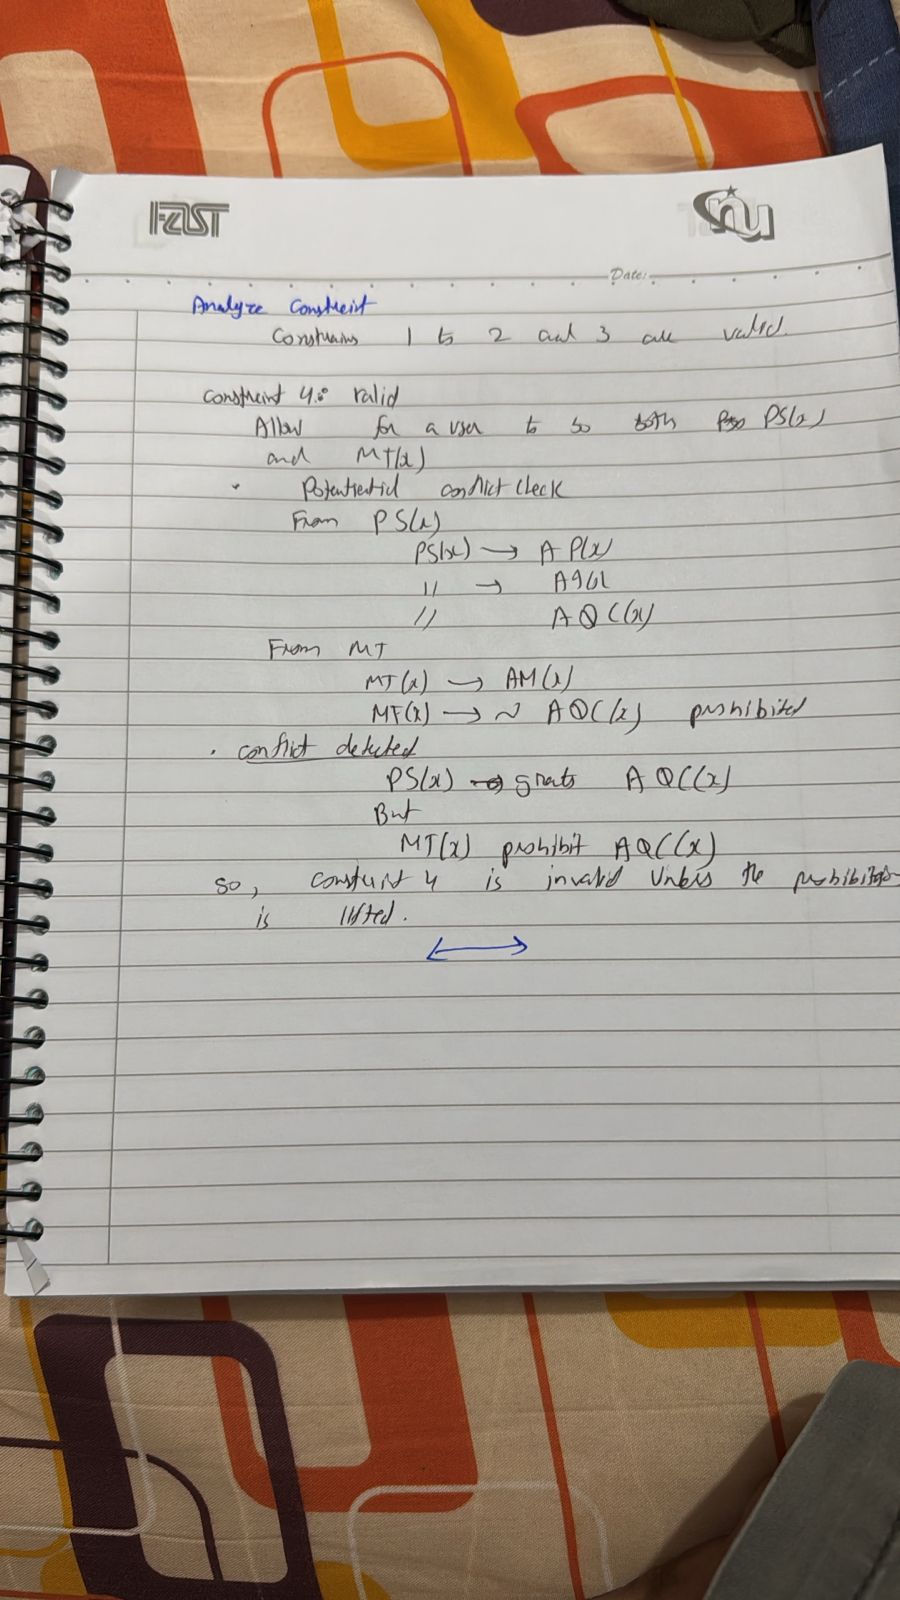 FAST nu
Date:
Analyze Constreint
Constrains 1 to 2 and 3 are valid.
Constreint 4: valid
Allow for a user to so both PS(x)
and MT(x)
• Potentientid conflict check
From PS(x)
PS(x) → AP(x)
" →
" AQC(x)
From MT
MT(x) → AM(x)
MT(x) → ~ AQC(x) prohibited
• conflict detected
PS(x) → grats AQC(x)
But
MT(x) prohibit AQC(x)
so, constreint 4 is invalid Unless the prohibition
is lifted.